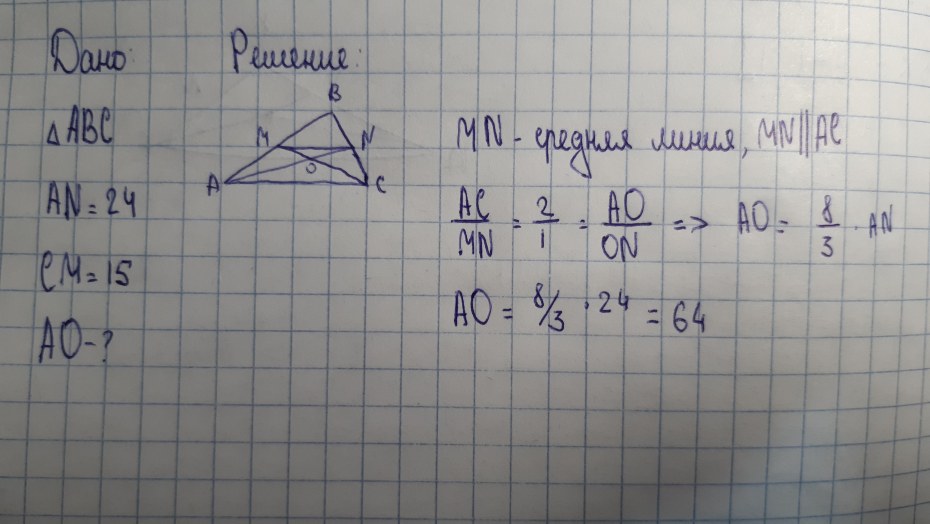 Дано: Решение:
△ABC
AN = 24
CM = 15
AO - ?
B
M N
O
A C
MN - средняя линия, MN || AC
AC/MN = 2/1 = AO/ON => AO = 8/3 · AN
AO = 8/3 · 24 = 64